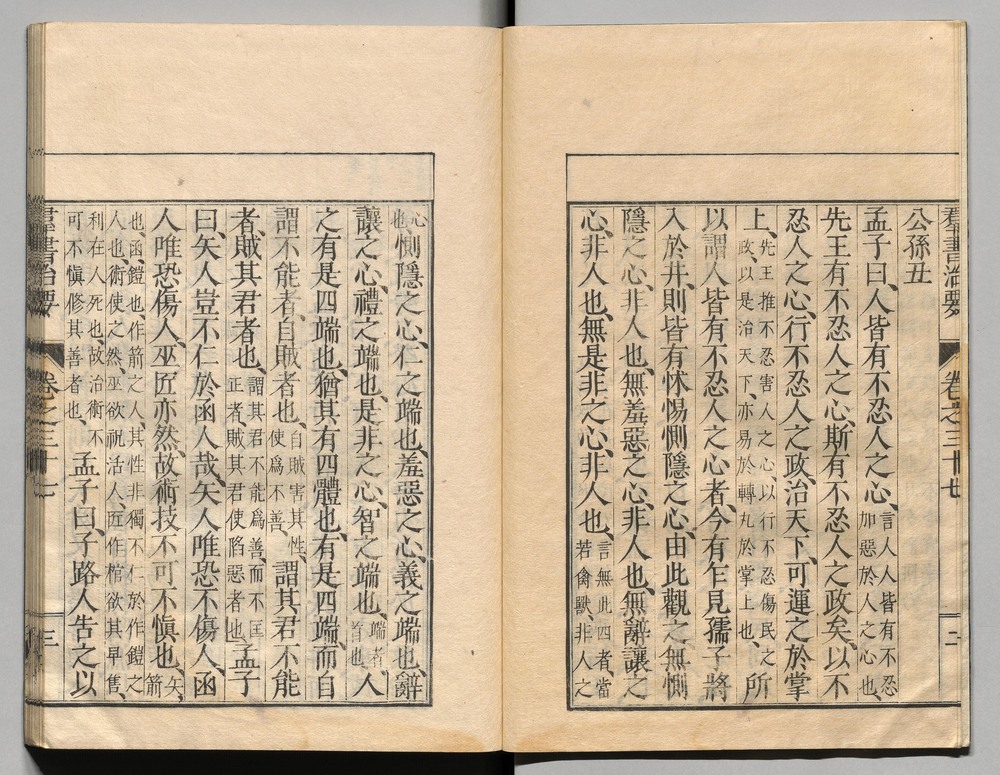 群書治要 卷之三十七 二
公孫丑
孟子曰、人皆有不忍人之心、言人人皆有不忍加惡於人之心也、
先王有不忍人之心、斯有不忍人之政矣、以不
忍人之心、行不忍人之政、治天下、可運之於掌
上、先王推不忍害人之心、以行不忍傷民之政、以是治天下、亦易於轉丸於掌上也、所
以謂人皆有不忍人之心者、今有乍見孺子將
入於井、則皆有怵惕惻隱之心、由此觀之、無惻
隱之心、非人也、無羞惡之心、非人也、無辭讓之
心、非人也、無是非之心、非人也、言無此四者、當若禽獸、非人之
心也、惻隱之心、仁之端也、羞惡之心、義之端也、辭
讓之心、禮之端也、是非之心、智之端也、端者、首也、人
之有是四端也、猶其有四體也、有是四端、而自
謂不能者、自賊者也、自賊害其性、使爲不善、謂其君不能
者、賊其君者也、謂其君不能爲善而不匡正者、賊其君使陷惡者也、孟子
曰、矢人豈不仁於函人哉、矢人唯恐不傷人、函
人唯恐傷人、巫匠亦然、故術技不可不愼也、矢、箭
也、函、鎧也、作箭之人、其性非獨不仁於作鎧之人也、術使之然、巫欲祝活人、匠作棺欲其早售、
利在人死也、故治術不可不愼修其善者也、孟子曰、子路人告之以
群書治要 卷之三十七 三